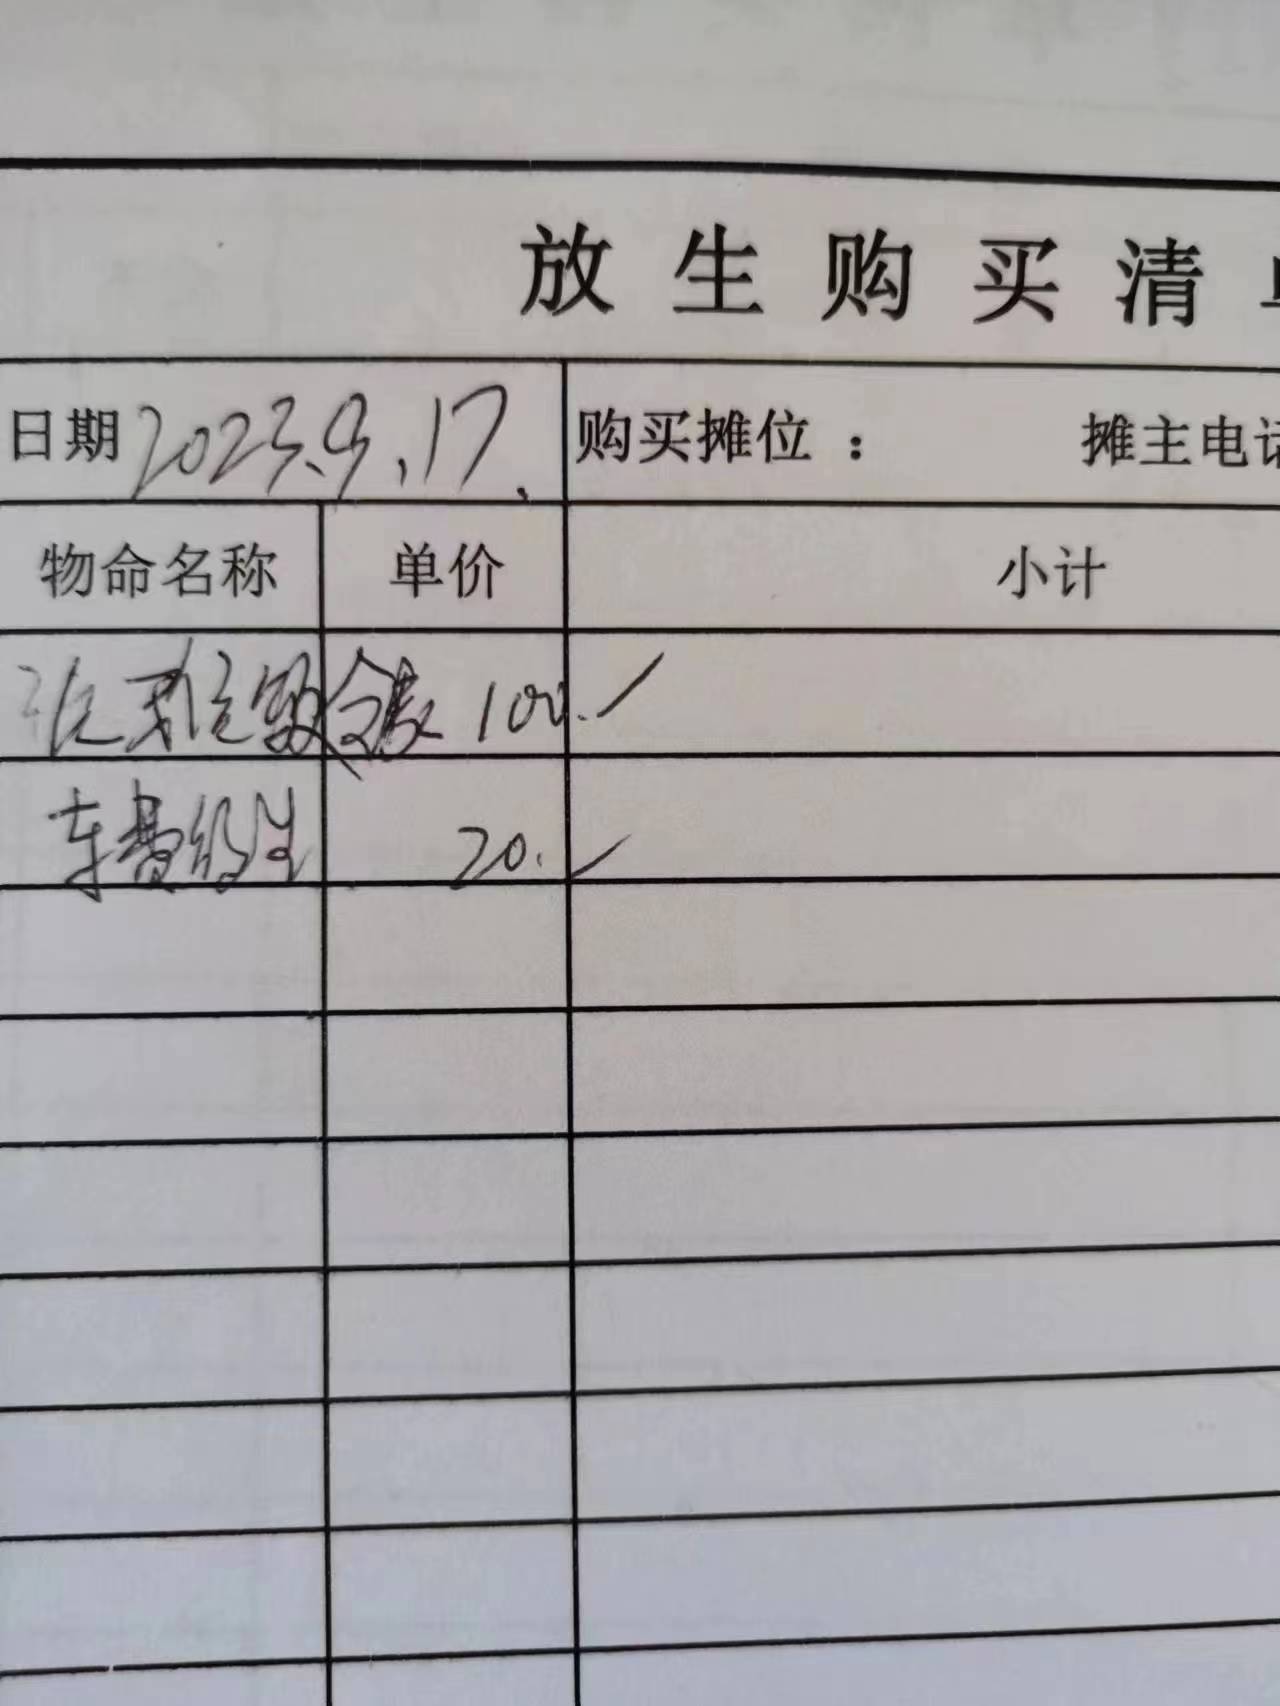 放生购买清
日期 2023.9.17. 购买摊位： 摊主电
物命名称 单价 小计
100.
车费 20.